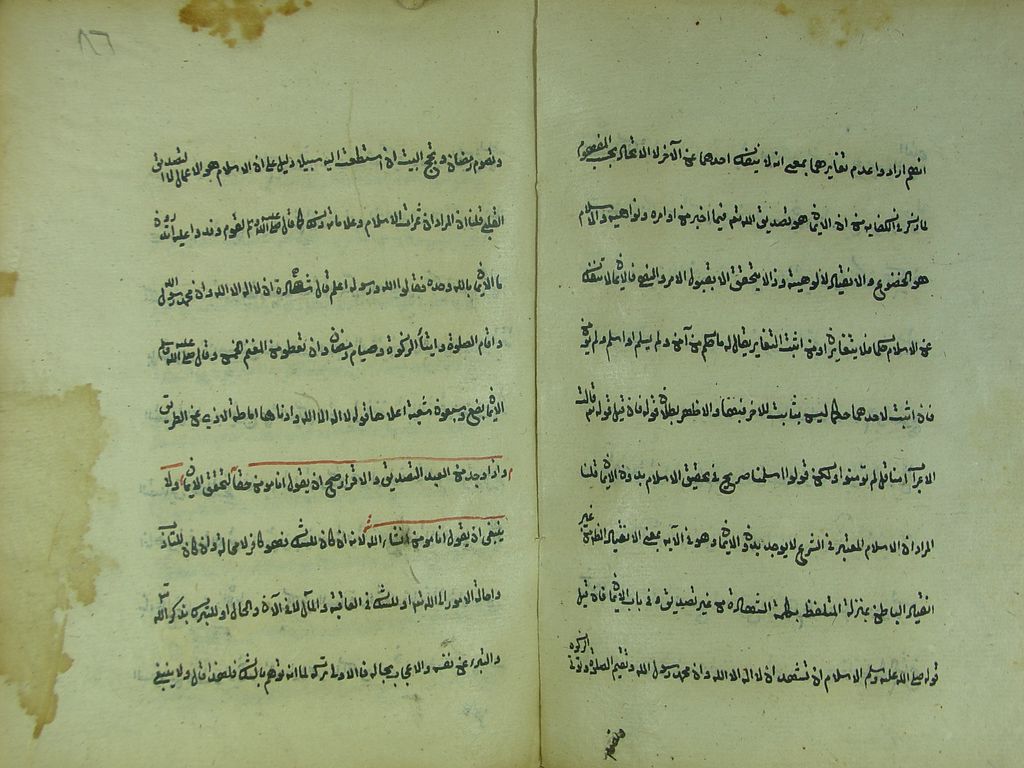 انهم ارادوا عدم تغايرهما بمعنى انه لا ينفك احدهما عن الآخر لا الاتحاد بحسب المفهوم
لما ذكر في الكفاية من ان الايمان هو تصديق الله تعم فيما اخبر من اوامره ونواهيه والاسلام
هو الخضوع والانقياد لالوهيته وذا لا يتحقق الا بقبول الامر والنهي فالايمان لا ينفك
عن الاسلام حكما فلا يتغايران ومن اثبت التغاير يقال له ما حكم من آمن ولم يسلم او اسلم ولم يؤمن
فان اثبت لاحدهما حكما ليس بثابت للاخر فبها والا ظهر بطلان قوله فان قيل قوله تعم قالت
الاعراب آمنا قل لم تؤمنوا ولكن قولوا اسلمنا صريح في تحقيق الاسلام بدون الايمان قلنا
المراد ان الاسلام المعتبر في الشرع لا يوجد بدون الايمان وهو في الآية بمعنى الانقياد الظاهر من غير
انقياد الباطن بمنزلة المتلفظ بكلمة الشهادة من غير تصديق في باب الايمان فان قيل
قوله صلى الله عليه وسلم الاسلام ان تشهد ان لا اله الا الله وان محمد رسول الله وتقيم الصلوة وتؤتي الزكوة
وتصوم
٨٦
وتصوم رمضان وتحج البيت ان استطعت اليه سبيلا دليل على ان الاسلام هو الاعمال لا التصديق
القلبي قلنا ان المراد ان ثمرات الاسلام وعلاماته ذلك كما قال صلى الله عليه وسلم لقوم وفدوا عليه اتدرون
ما الايمان بالله وحده فقالوا الله ورسوله اعلم قال شهادة ان لا اله الا الله وان محمد رسول الله
واقام الصلوة وايتاء الزكوة وصيام رمضان وان تعطوا من المغنم الخمس وقال صلى الله عليه وسلم
الايمان بضع وسبعون شعبة اعلاها قول لا اله الا الله وادناها اماطة الاذى عن الطريق
واذا وجد من العبد التصديق والاقرار صح ان يقول انا مؤمن حقا لتحقق الايمان ولا
ينبغي ان يقول انا مؤمن انشاء الله لانه ان كان للشك فهو كافر لا محالة وان كان للتأدب
واحالة الامور الى الله تعم او للشك في العاقبة والمآل لا في الآن والحال او للتبرك بذكر الله تعم
والتبرء عن نفسه والاعجاب بحاله فالاولى تركه لما انه توهم بالشك فلهذا قال ولا ينبغي